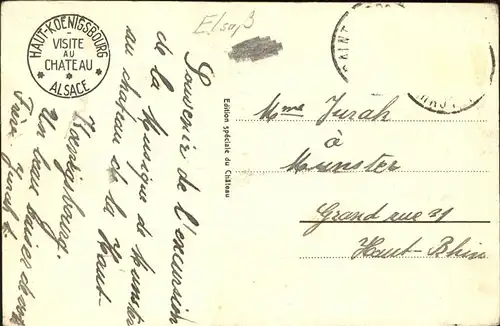 HAUT-KOENIGSBOURG
VISITE
AU
CHATEAU
ALSACE
Elsaß
Souvenir de l'excursion
de la Musique de Munster
au chateau de la Haut-
Kœnigsbourg.
Un beau
Jurah
Edition spéciale du Château
Mme Jurah
à
Munster
Grand rue 31
Haut-Rhin
SAINT